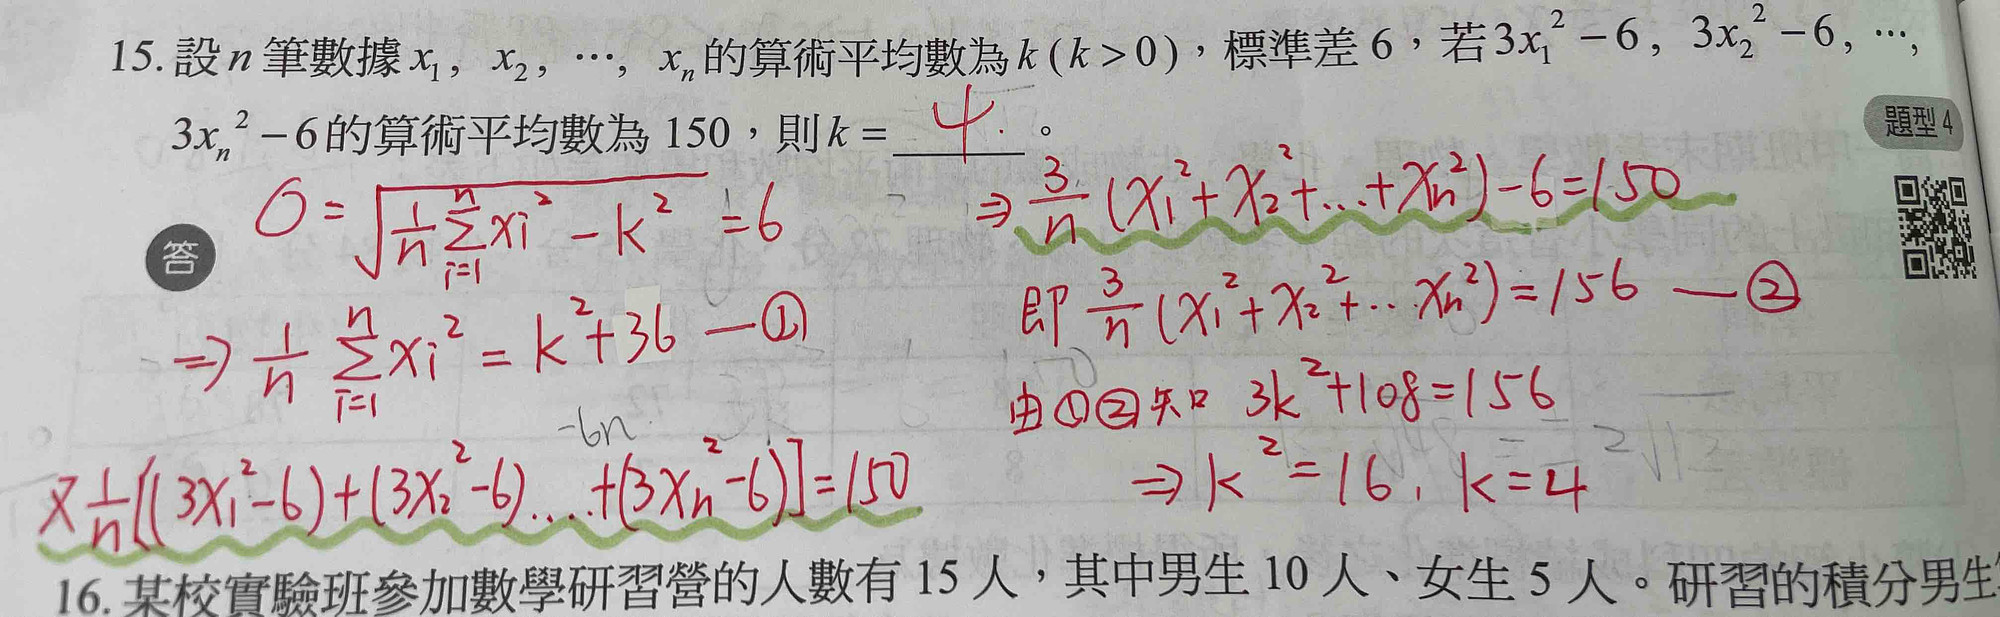 15. 設 n 筆數據 x₁, x₂, ⋯, xₙ 的算術平均數為 k (k > 0),標準差 6,若 3x₁² − 6, 3x₂² − 6, ⋯,
3xₙ² − 6 的算術平均數為 150,則 k = 4. 。
題型 4
答
σ = √(1/n Σᵢ₌₁ⁿ xᵢ² − k²) = 6
⇒ 1/n Σᵢ₌₁ⁿ xᵢ² = k² + 36 — ①
−6n
又 1/n [(3x₁² − 6) + (3x₂² − 6) .... + (3xₙ² − 6)] = 150
⇒ 3/n (x₁² + x₂² + ... + xₙ²) − 6 = 150
即 3/n (x₁² + x₂² + ... xₙ²) = 156 — ②
由①②知 3k² + 108 = 156
⇒ k² = 16, k = 4
16. 某校實驗班參加數學研習營的人數有 15 人,其中男生 10 人、女生 5 人。研習的積分男生